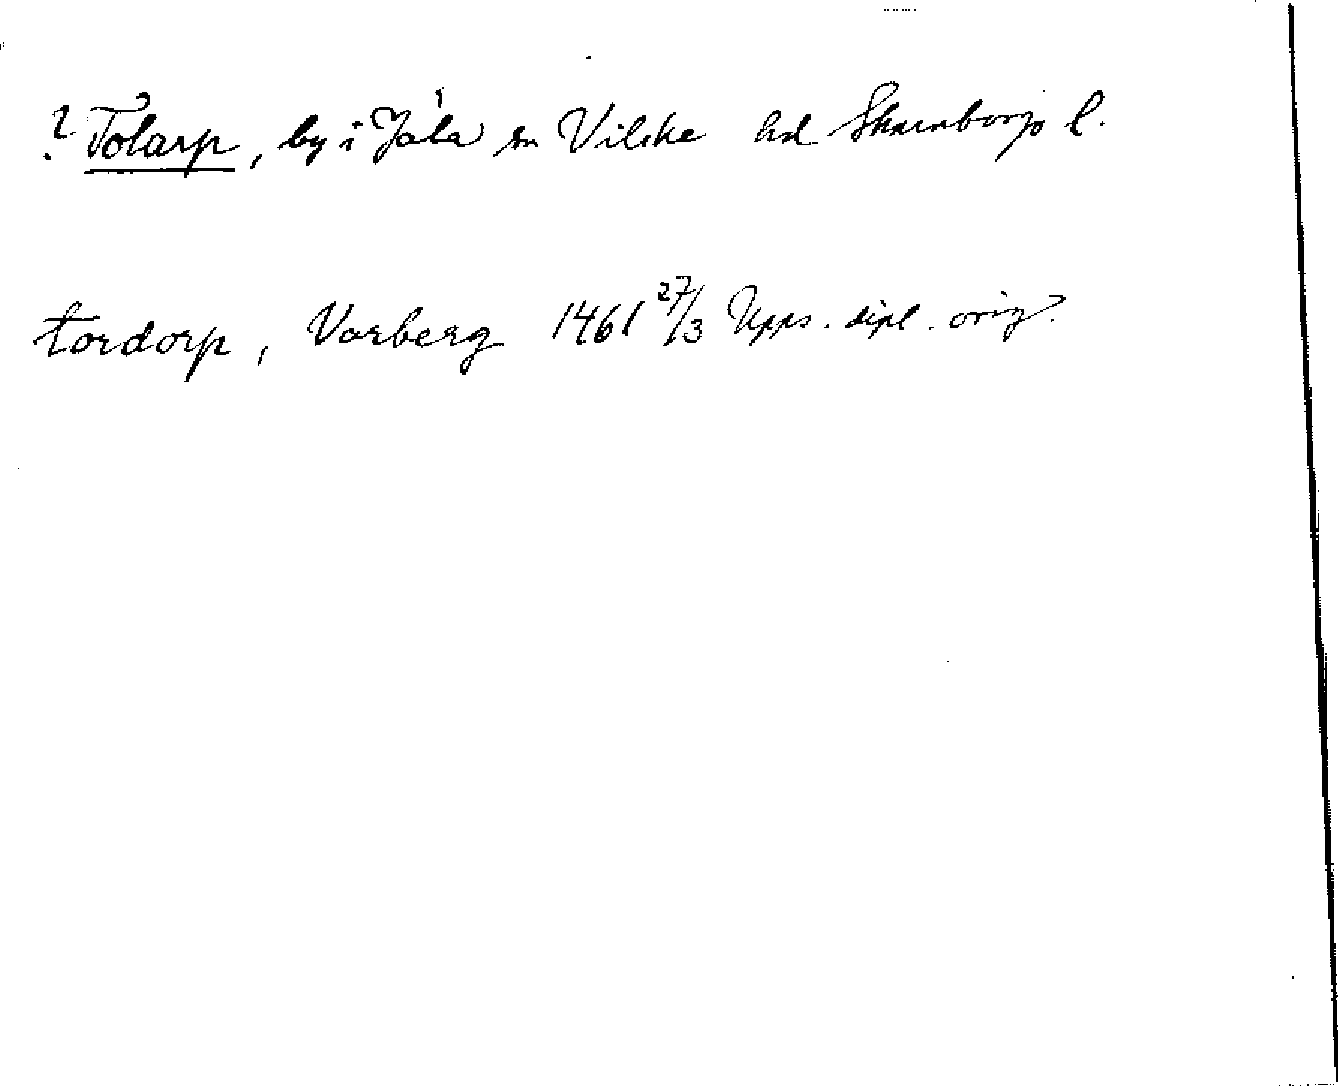 ? Tolarp, by i Jäla sn Vilske hd Skaraborgs l.
tordorp, Varberg 1461 27/3 Upps. dipl. orig.